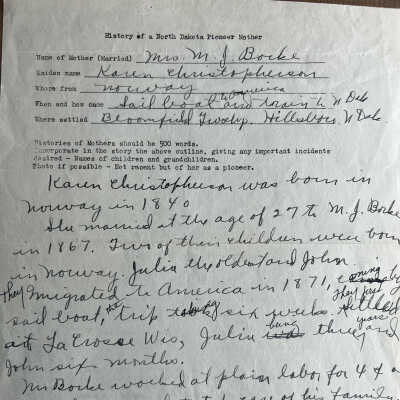 History of a North Dakota Pioneer Mother
Name of Mother (Married) Mrs. M. J. Bocke
Maiden name Karen Christopherson
Whore from Norway
to America
When and how came Sail boat and train to N Dak
Where settled Bloomfield Twshp. Hillsboro, N Dak
Histories of Mothers should be 500 words.
Incorporate in the story the above outline, giving any important incidents
desired - Names of children and grandchildren.
Photo if possible - Not recent but of her as a pioneer.
Karen Christopherson was born in
Norway in 1840
She married at the age of 27 to M. J. Bocke
in 1867. Two of their children were born
in Norway. Julia the oldest and John
They immigrated to America in 1871, coming by
sail boat, the trip six weeks. They first settled
at LaCrosse Wis, Julia being three years and
John six months.
Mr Bocke worked at plain labor for 4
of his family